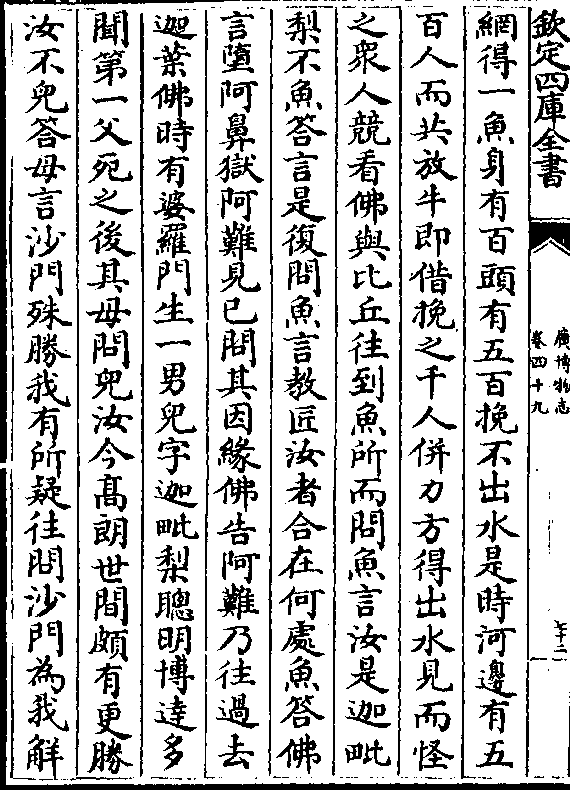 欽定四庫全書
廣博物志
卷四十九
十二
網得一魚身有百頭有五百挽不出水是時河邊有五
百人而共放牛即借挽之千人併力方得出水見而怪
之衆人競看佛與比丘往到魚所而問魚言汝是迦毗
梨不魚答言是復問魚言教匠汝者合在何處魚答佛
言墮阿鼻獄阿難見已問其因緣佛告阿難乃往過去
迦葉佛時有婆羅門生一男兒字迦毗梨聰明博達多
聞第一父死之後其母問兒汝今髙朗世間頗有更勝
汝不兒答母言沙門殊勝我有所疑往問沙門為我解